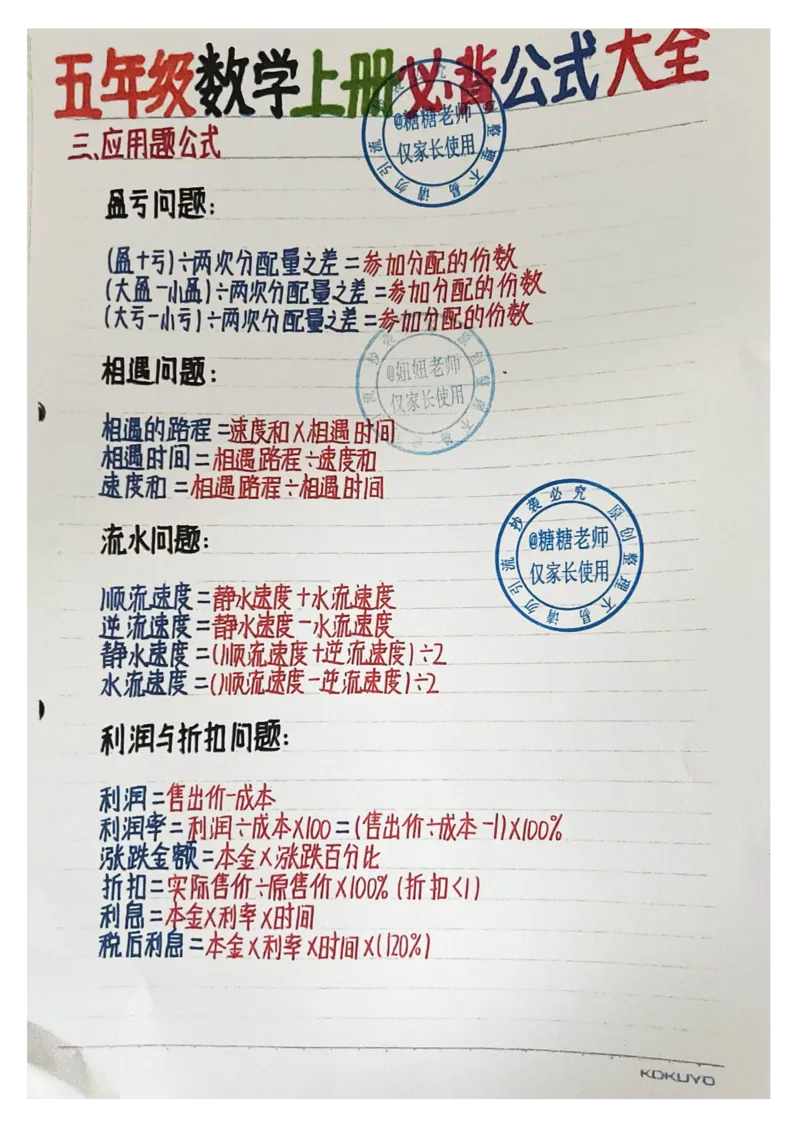 五年级数学上册必背公式大全
三、应用题公式
盈亏问题:
(盈+亏)÷两次分配量之差=参加分配的份数
(大盈-小盈)÷两次分配量之差=参加分配的份数
(大亏-小亏)÷两次分配量之差=参加分配的份数
相遇问题:
相遇的路程=速度和X相遇时间
相遇时间=相遇路程÷速度和
速度和=相遇路程÷相遇时间
流水问题:
顺流速度=静水速度+水流速度
逆流速度=静水速度-水流速度
静水速度=(顺流速度+逆流速度)÷2
水流速度=(顺流速度-逆流速度)÷2
利润与折扣问题:
利润=售出价-成本
利润率=利润÷成本X100=(售出价÷成本-1)X100%
涨跌金额=本金X涨跌百分比
折扣=实际售价÷原售价X100%(折扣<1)
利息=本金X利率X时间
税后利息=本金X利率X时间X(120%)
@糖糖老师
仅家长使用
@妞妞老师
仅家长使用
抄袭必究 原创整理不易请勿引流
@糖糖老师
仅家长使用
KOKUYO